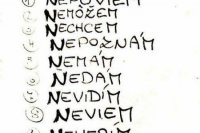 NEPOVIEM
NEMÔŽEM
NECHCEM
NEPOZNÁM
NEMÁM
NEDÁM
NEVIDÍM
NEVIEM